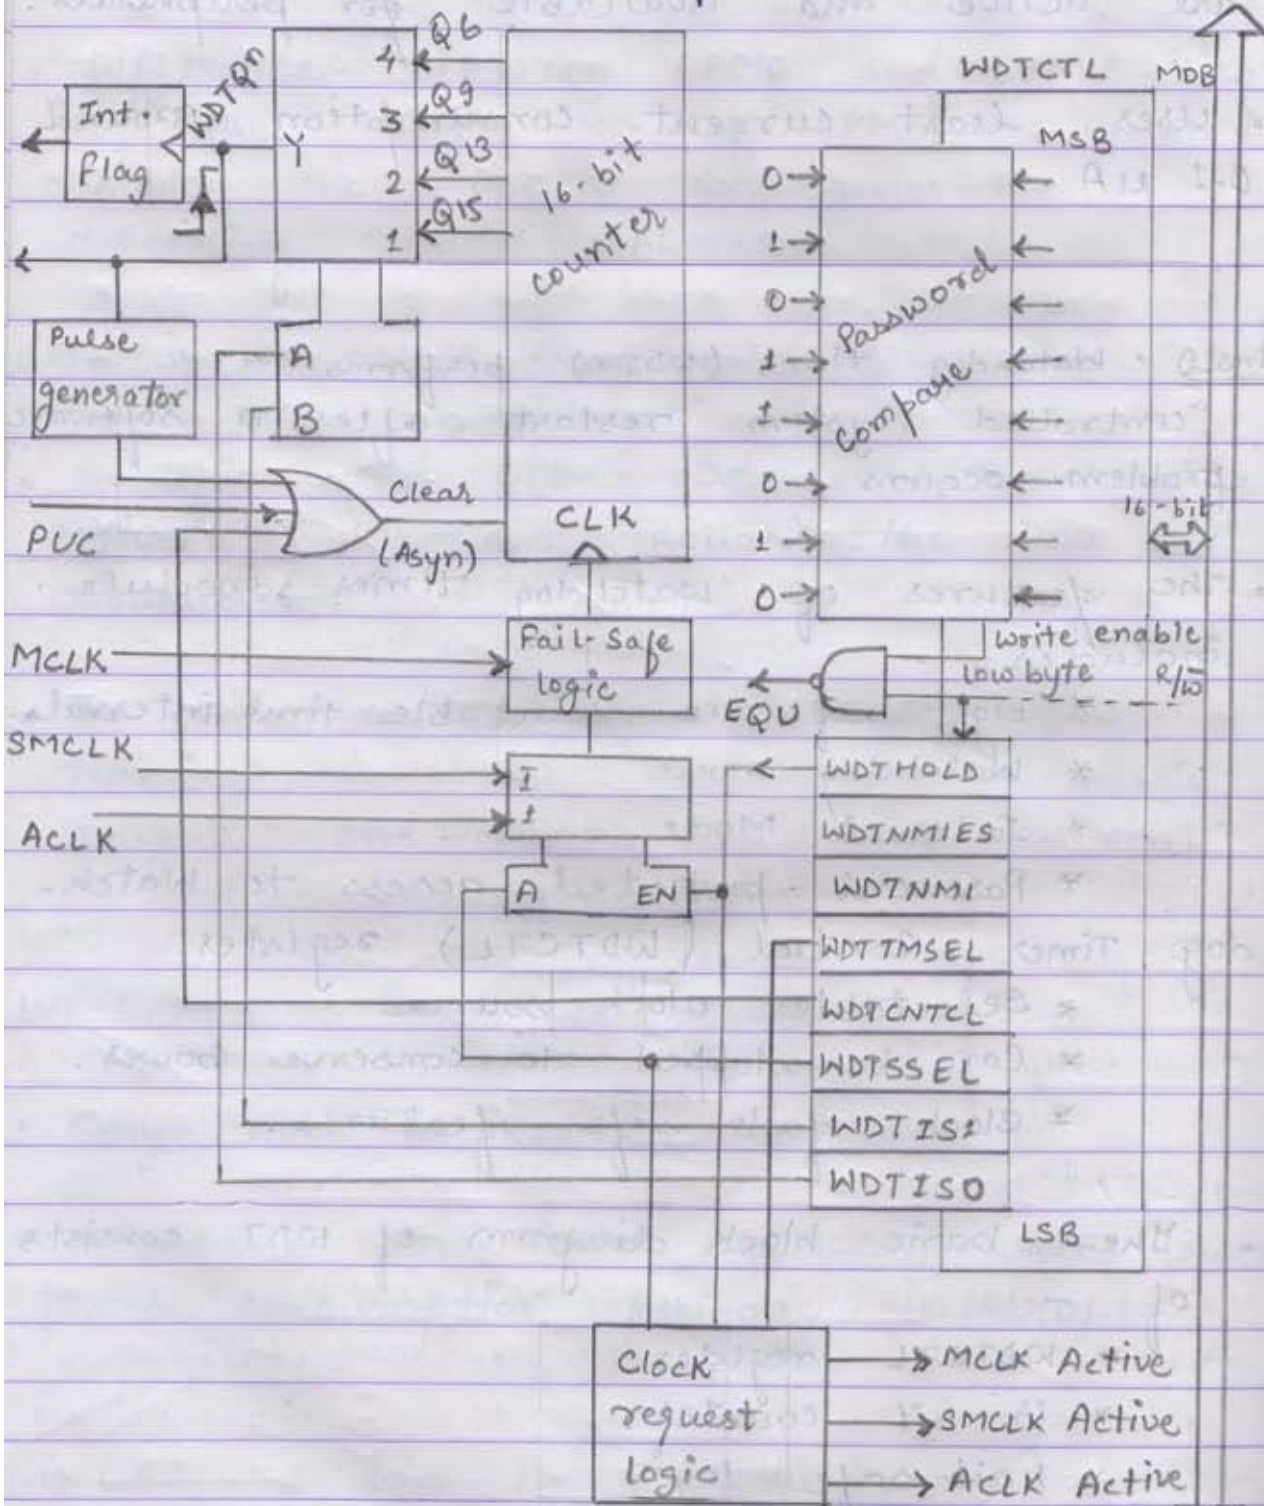 Q6
4
Q9
3
Q13
2
Q15
1
Y
WDTQn
Int.
flag
16-bit
counter
WDTCTL
MDB
MSB
0
1
0
1
1
0
1
0
Password
compare
16-bit
Pulse
generator
A
B
Clear
(Asyn)
CLK
PUC
MCLK
Fail-Safe
logic
SMCLK
ACLK
1
1
A
EN
EQU
Write enable
low byte
R/W̅
WDTHOLD
WDTNMIES
WDTNMI
WDTTMSEL
WDTCNTCL
WDTSSEL
WDTIS1
WDTIS0
LSB
Clock
request
logic
MCLK Active
SMCLK Active
ACLK Active